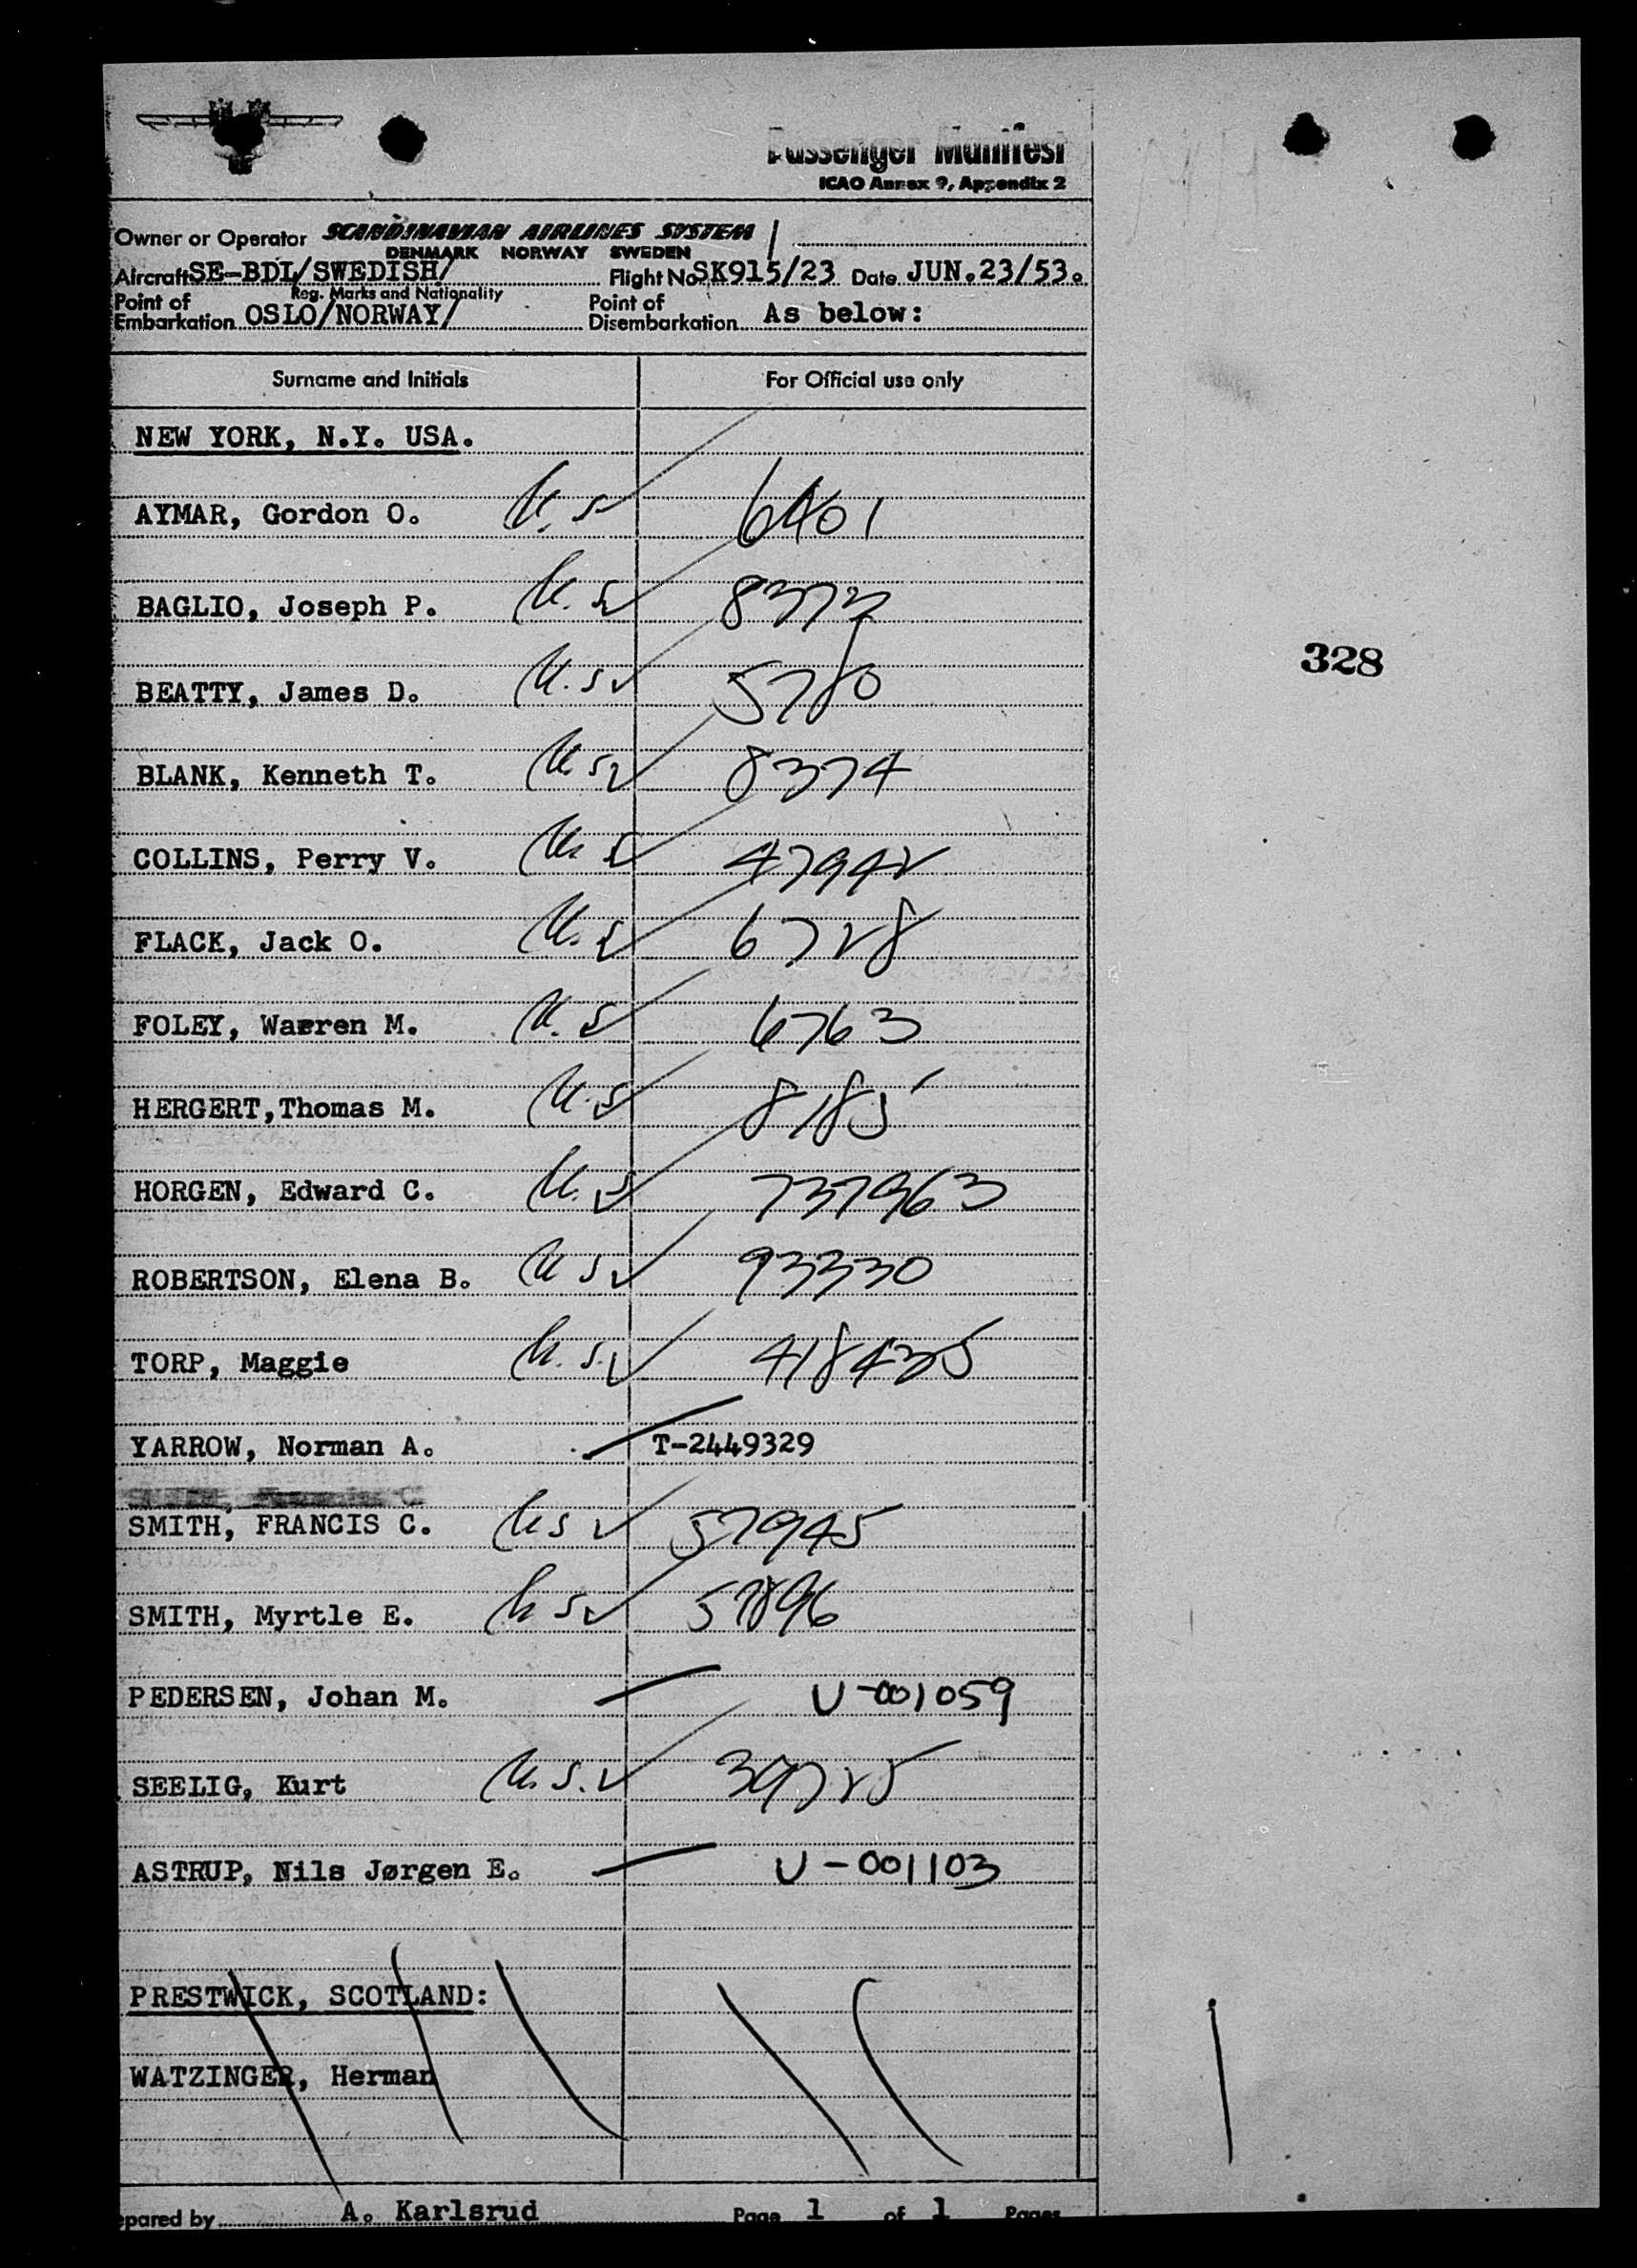 Passenger Manifest
ICAO Annex 9, Appendix 2
Owner or Operator SCANDINAVIAN AIRLINES SYSTEM
DENMARK NORWAY SWEDEN
Aircraft SE-BDL/SWEDISH/ Flight No SK915/23 Date JUN.23/53.
Reg. Marks and Nationality
Point of Embarkation OSLO/NORWAY/ Point of Disembarkation As below:
Surname and Initials For Official use only
NEW YORK, N.Y. USA.
AYMAR, Gordon O. U.S. 6401
BAGLIO, Joseph P. U.S. 8373
BEATTY, James D. U.S. 5780
BLANK, Kenneth T. U.S. 8374
COLLINS, Perry V. U.S. 47942
FLACK, Jack O. U.S. 6728
FOLEY, Warren M. U.S. 6763
HERGERT, Thomas M. U.S. 8185
HORGEN, Edward C. U.S. 737963
ROBERTSON, Elena B. U S 93330
TORP, Maggie U.S. 418435
YARROW, Norman A. T-2449329
SMITH, FRANCIS C. U S 57945
SMITH, Myrtle E. U S 57896
PEDERSEN, Johan M. U-001059
SEELIG, Kurt U.S. 39725
ASTRUP, Nils Jørgen E. U-001103
PRESTWICK, SCOTLAND:
WATZINGER, Herman
epared by A. Karlsrud Page 1 of 1 Pages
328